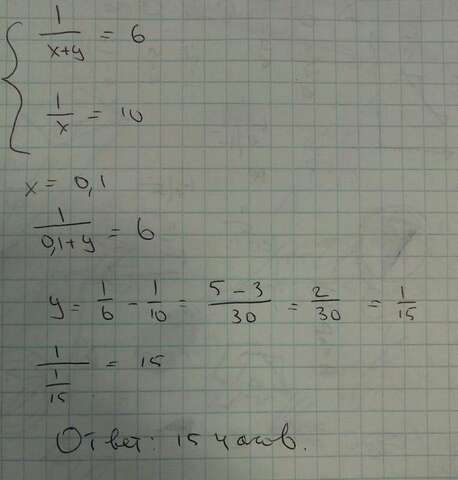 1/(x+y) = 6
1/x = 10
x = 0,1
1/(0,1+y) = 6
y = 1/6 - 1/10 = (5-3)/30 = 2/30 = 1/15
1/(1/15) = 15
Ответ: 15 часов.